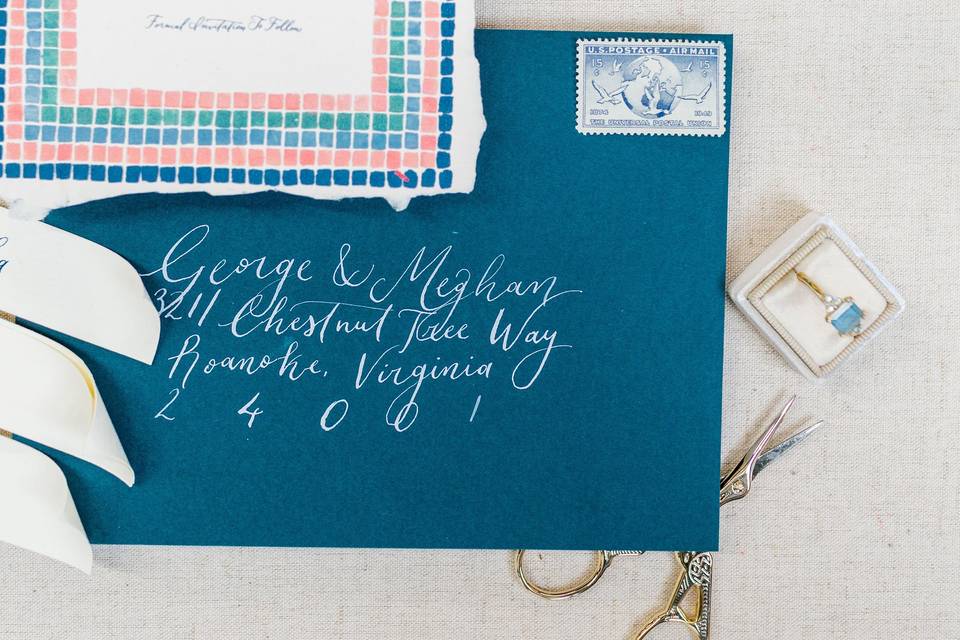 Formal Invitation To Follow
U.S. POSTAGE • AIR MAIL
15 15
¢ ¢
1874 1949
THE UNIVERSAL POSTAL UNION
George & Meghan
3211 Chestnut Tree Way
Roanoke, Virginia
2 4 0 0 1